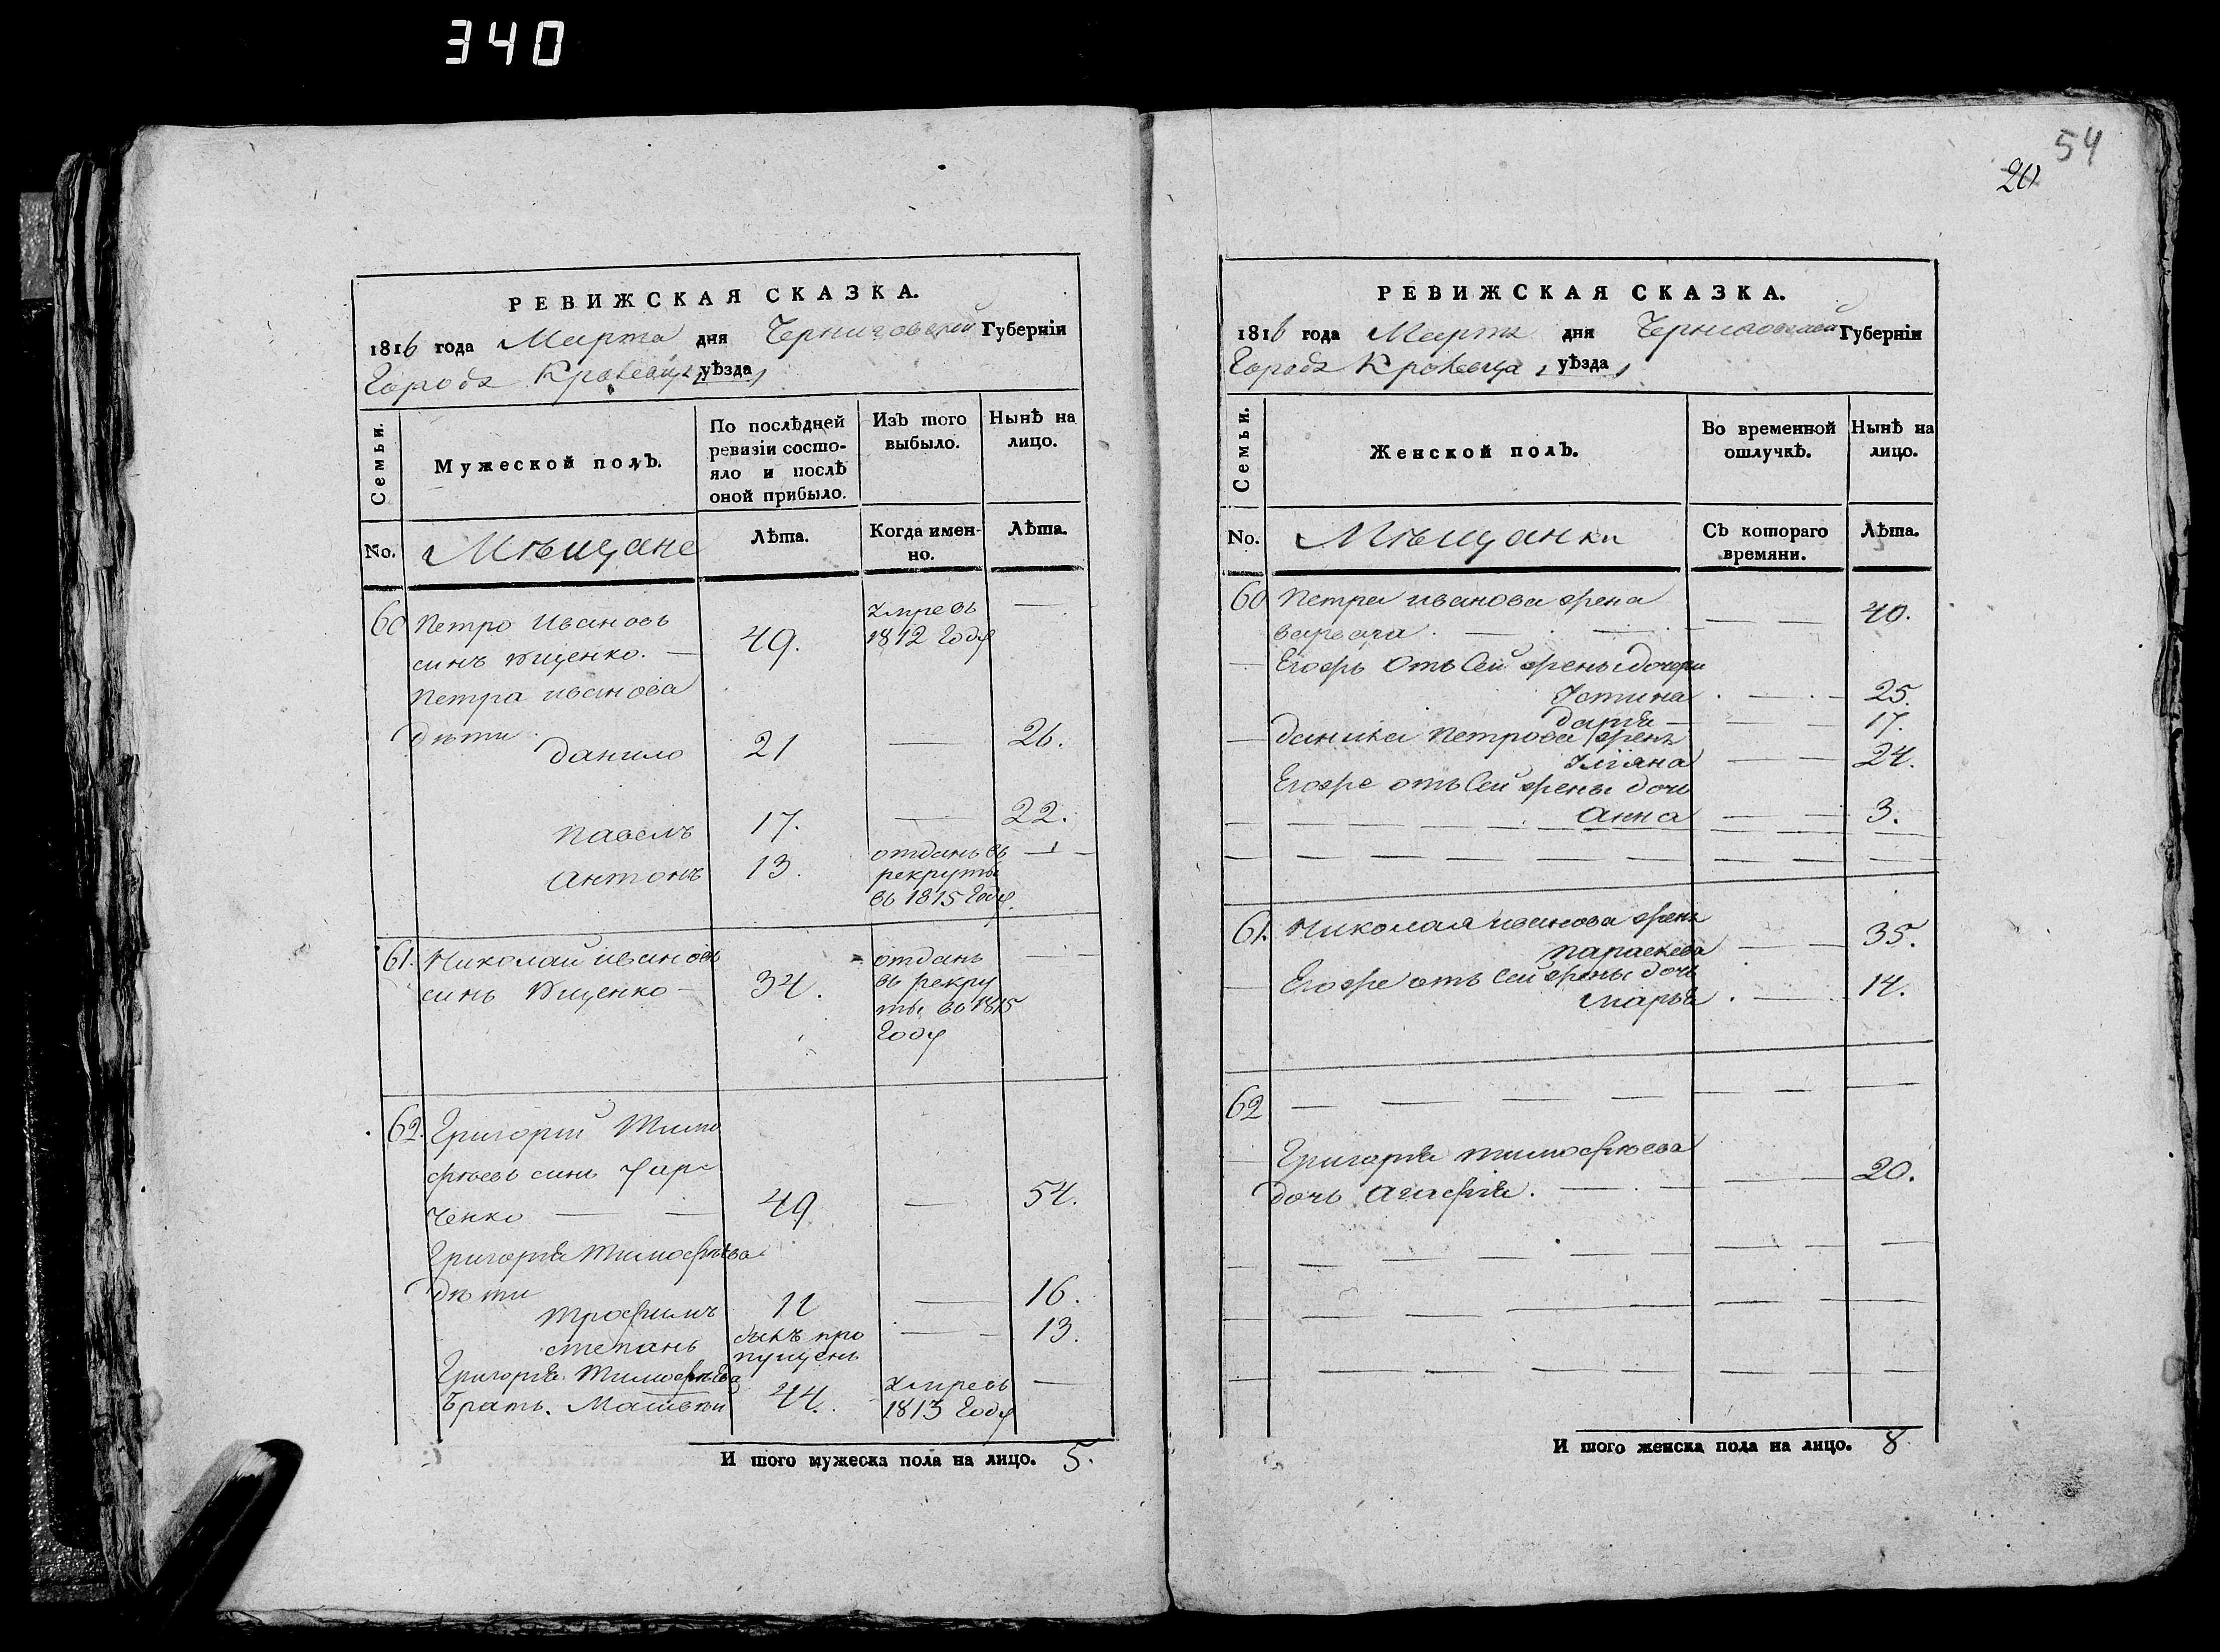 340
54
20
РЕВИЖСКАЯ СКАЗКА.
1816 года Марта дня Черниговской Губерніи
Города Кролевца уѣзда
Семьи.
Мужеской полъ.
По послѣдней
ревизіи состо-
яло и послѣ
оной прибыло.
Изъ того
выбыло.
Нынѣ на
лицо.
No.
Мѣщане
Лѣта.
Когда имен-
но.
Лѣта.
60 Петро Ивановъ
синъ Ющенко. — 49. умревъ 1812 Году —
Петра иванова
дѣти
данило 21 — 26.
павелъ 17. — 22.
антонъ 13. отданъ въ — —
рекруты
въ 1815 Году.
61. Николай ивановъ
синъ Ющенко — 34. отданъ — —
въ рекру
ты въ 1815
Году
62. Григорій Тимо
фѣевъ синъ
ченко — — 49 — 54.
Григорія Тимофѣева
дѣти
трофимъ 11 — 16.
степанъ былъ про — 13.
пущенъ
Григорія Тимофѣева
братъ. Матвѣй 44. умревъ —
1813 Году
И того мужеска пола на лицо. 5.
РЕВИЖСКАЯ СКАЗКА.
1816 года Марта дня Черниговской Губерніи
Города Кролевца, уѣзда
Семьи.
Женской полъ.
Во временной
отлучкѣ.
Нынѣ на
лицо.
No.
Мѣщанки
Съ котораго
времяни.
Лѣта.
60 Петра иванова жена
варвара. — — — 40.
Егожъ Отъ Сей жены дочери
Устина — 25.
дарія — — — 17.
данила Петрова жена
Уліяна — — 24.
Егоже отъ Сей жены дочь
анна — — 3.
61. Николая иванова жена
параскева — — 35.
Егоже отъ Сей жены дочь
марья — 14.
62 — — — — — — —
Григорія тимофѣева
дочь агафія. — — — — 20.
И того женска пола на лицо. 8